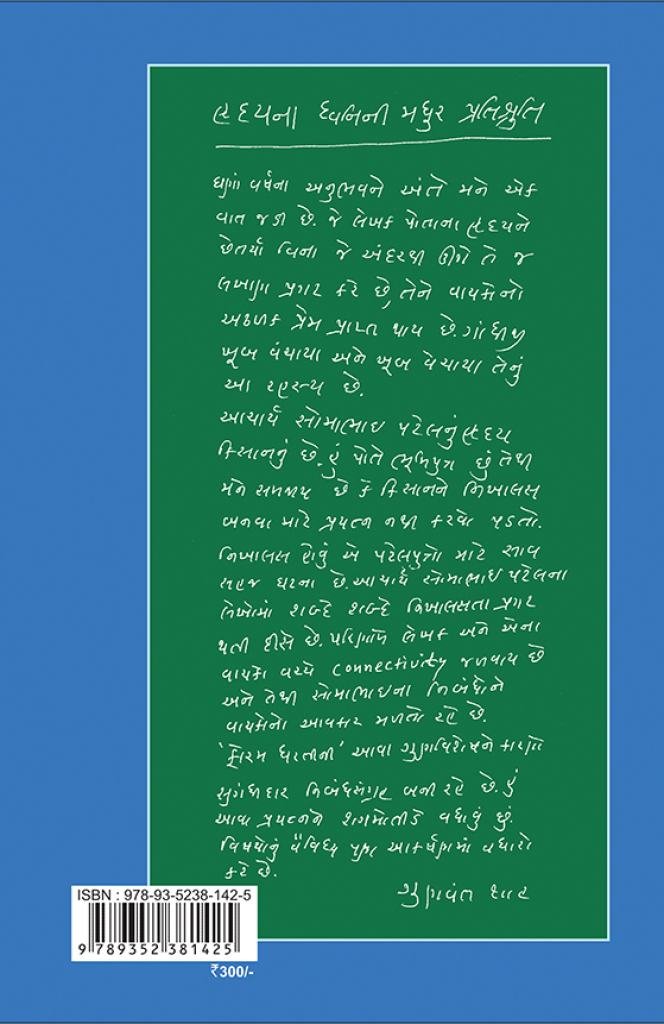 હૃદયના ધ્વનિની મધુર પ્રતિશ્રુતિ
ઘણાં વર્ષના અનુભવને અંતે મને એક
વાત જડી છે. જે લેખક પોતાના હૃદયને
છેતર્યા વિના જે અંદરથી ઊગે તે જ
લખાણ પ્રગટ કરે છે, તેને વાચકોનો
અઢળક પ્રેમ પ્રાપ્ત થાય છે. ગાંધીજી
ખૂબ વંચાયા અને ખૂબ વેચાયા તેનું
આ રહસ્ય છે.
આચાર્ય સોમાભાઇ પટેલનું હૃદય
કિસાનનું છે. હું પોતે ભૂમિપુત્ર છું તેથી
મને સમજાય છે કે કિસાનને નિખાલસ
બનવા માટે પ્રયત્ન નથી કરવો પડતો.
નિખાલસ હોવું એ પટેલપુત્રો માટે સાવ
સહજ ઘટના છે. આચાર્ય સોમાભાઇ પટેલના
લેખોમાં શબ્દે શબ્દે નિખાલસતા પ્રગટ
થતી દીસે છે. પરિણામે લેખક અને એના
વાચકો વચ્ચે connectivity જળવાય છે
અને તેથી સોમાભાઇના નિબંધોને
વાચકોનો આવકાર મળતો રહે છે.
'ફોરમ ધરતીની' આવા ગુણવિશેષને કારણે
સુગંધીદાર નિબંધસંગ્રહ બની રહે છે. હું
આવા પ્રયત્નને શગમોતીડે વધાવું છું.
વિષયોનું વૈવિધ્ય પુણ આકર્ષણમાં વધારો
કરે છે.
ગુણવંત શાહ
ISBN : 978-93-5238-142-5
9 789352 381425
₹300/-